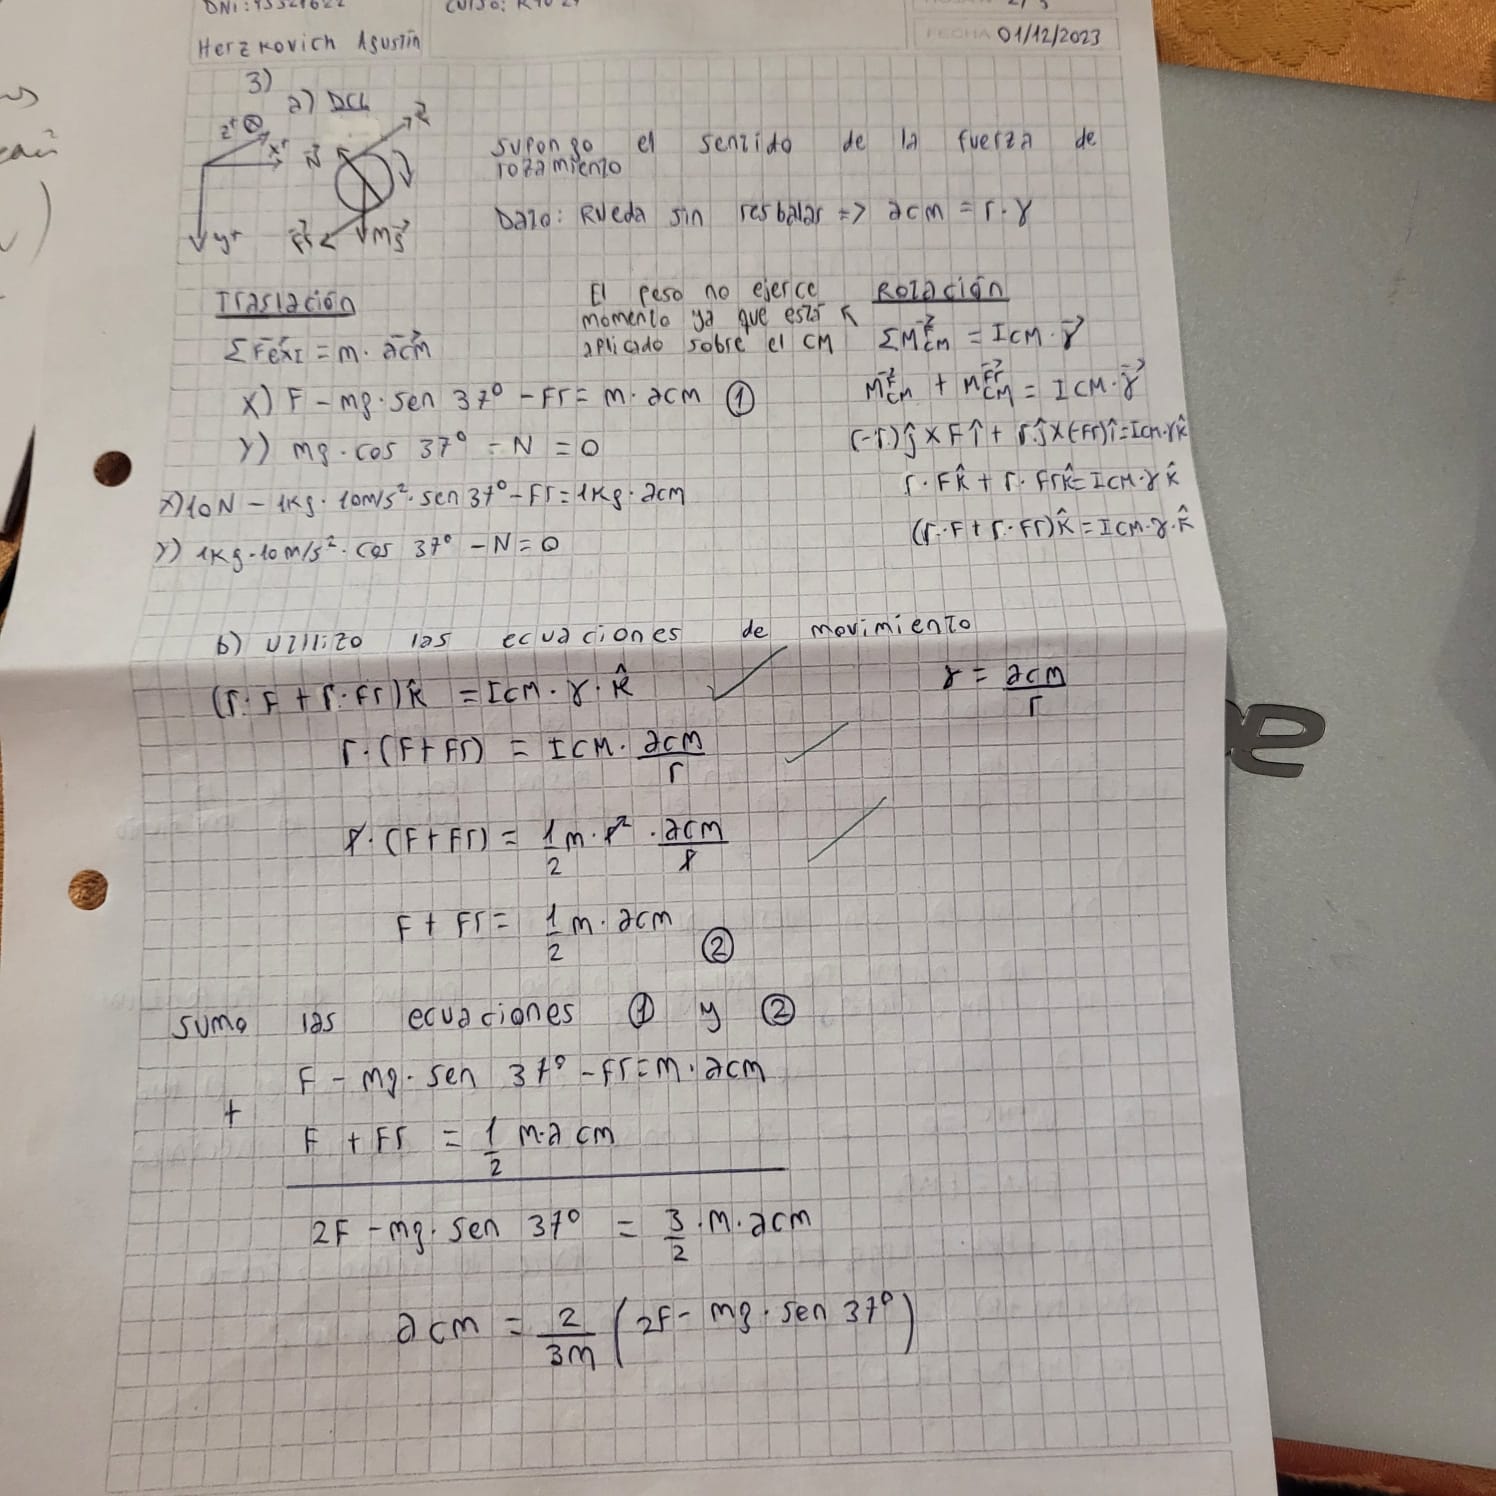 Herzkovich Agustín
FECHA 01/12/2023
3)
a) DCL
z+ ⊗
x+
y+
N⃗
F⃗
Fr⃗
Mg⃗
Supongo el sentido de la fuerza de
rozamiento
Dato: Rueda sin resbalar => acm = r · γ
Traslación
ΣF⃗ext = m · a⃗cm
x) F - mg · sen 37º - Fr = m · acm ①
y) mg · cos 37º - N = 0
x) 10N - 1kg · 10m/s² · sen 37º - Fr = 1kg · acm
y) 1kg · 10m/s² · cos 37º - N = 0
El peso no ejerce
momento ya que está
aplicado sobre el CM
Rotación
ΣM⃗^F_CM = ICM · γ⃗
M⃗^F_CM + M⃗^Fr_CM = ICM · γ⃗
(-r)ĵ x F î + r ĵ x (-Fr) î = Icm · γ k̂
r · F k̂ + r · Fr k̂ = ICM · γ k̂
(r · F + r · Fr) k̂ = ICM · γ · k̂
b) Utilizo las ecuaciones de movimiento
(r · F + r · Fr) k̂ = ICM · γ · k̂
γ = acm/r
r · (F + Fr) = ICM · acm/r
r · (F + Fr) = 1/2 m · r² · acm/r
F + Fr = 1/2 m · acm ②
Sumo las ecuaciones ① y ②
F - mg · sen 37º - Fr = m · acm
+
F + Fr = 1/2 m · acm
2F - mg · sen 37º = 3/2 · m · acm
acm = 2/3m (2F - mg · sen 37º)